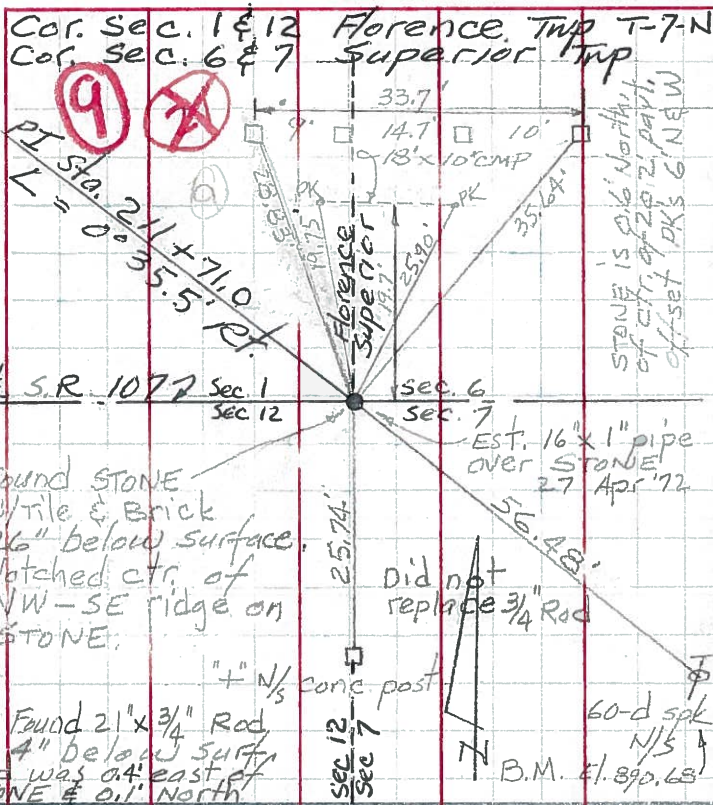 Cor. Sec. 1 & 12 Florence Twp T-7-N
Cor. Sec. 6 & 7 Superior Twp
9
33.7'
9' 14.7' 10'
18' x 10" CMP
PK PK
28.83'
19.75'
25.90'
19.7'
35.64'
Florence
Superior
STONE is 0.6' North
of ctr. of 20.2' pavt.
offset PKs 6' N E W
PI Sta. 211 + 71.0
L = 0° 35.5' Rt.
S.R. 107
Sec 1
Sec 12
Sec. 6
Sec. 7
Est. 16" x 1" pipe
over STONE
27 Apr '72
ound STONE
Tile & Brick
6" below surface.
otched ctr. of
NW-SE ridge on
STONE.
25.74'
56.48'
Did not
replace 3/4" Rod
"+" N/s conc post
N
60-d spk
N/S
B.M. El. 890.68'
Found 21" x 3/4" Rod
4" below surf.
was 0.4' east of
ONE & 0.1' North
Sec 12
Sec 7